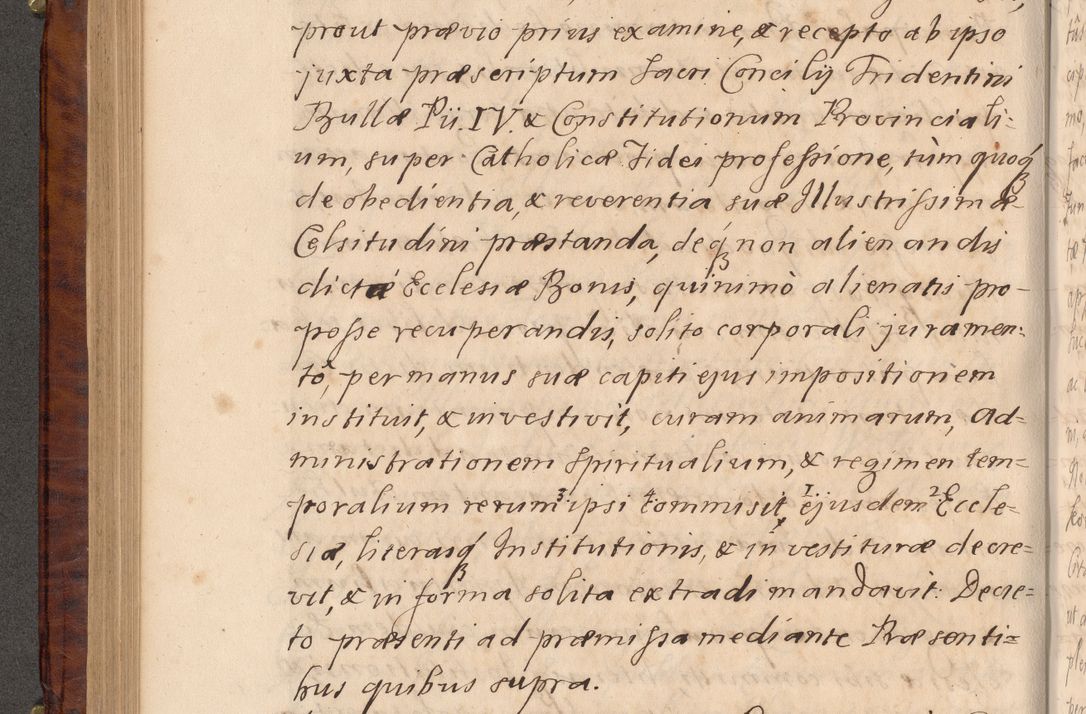 prout prævio prius examine, & recepto ab ipso
juxta præscriptum Sacri Concilij Tridentini
Bullæ Pii. IV. & Constitutionum Provinciali=
um, super Catholicæ Fidei professione, tùm quoq́ꝫ
de obedientia, & reverentia suæ Illustrissimæ
Celsitudini præstanda, deq́ꝫ non alienandis
dictæ Ecclesiæ Bonis, quinimò alienatis pro-
posse recuperandis, solito corporali juramen=
tô, per manus suæ capiti ejus impositionem
instituit, & investivit, curam animarum, ad=
ministrationem Spiritualium, & regimen tem=
poralium rerum ³ipsi ⁴commisit, ¹ejusdem ²Eccle=
siæ, literasq́ꝫ Institutionis, & investituræ decre=
vit, & in forma solita extradi mandavit: Decre=
to præsenti ad præmissa mediante Præsenti=
bus quibus supra.